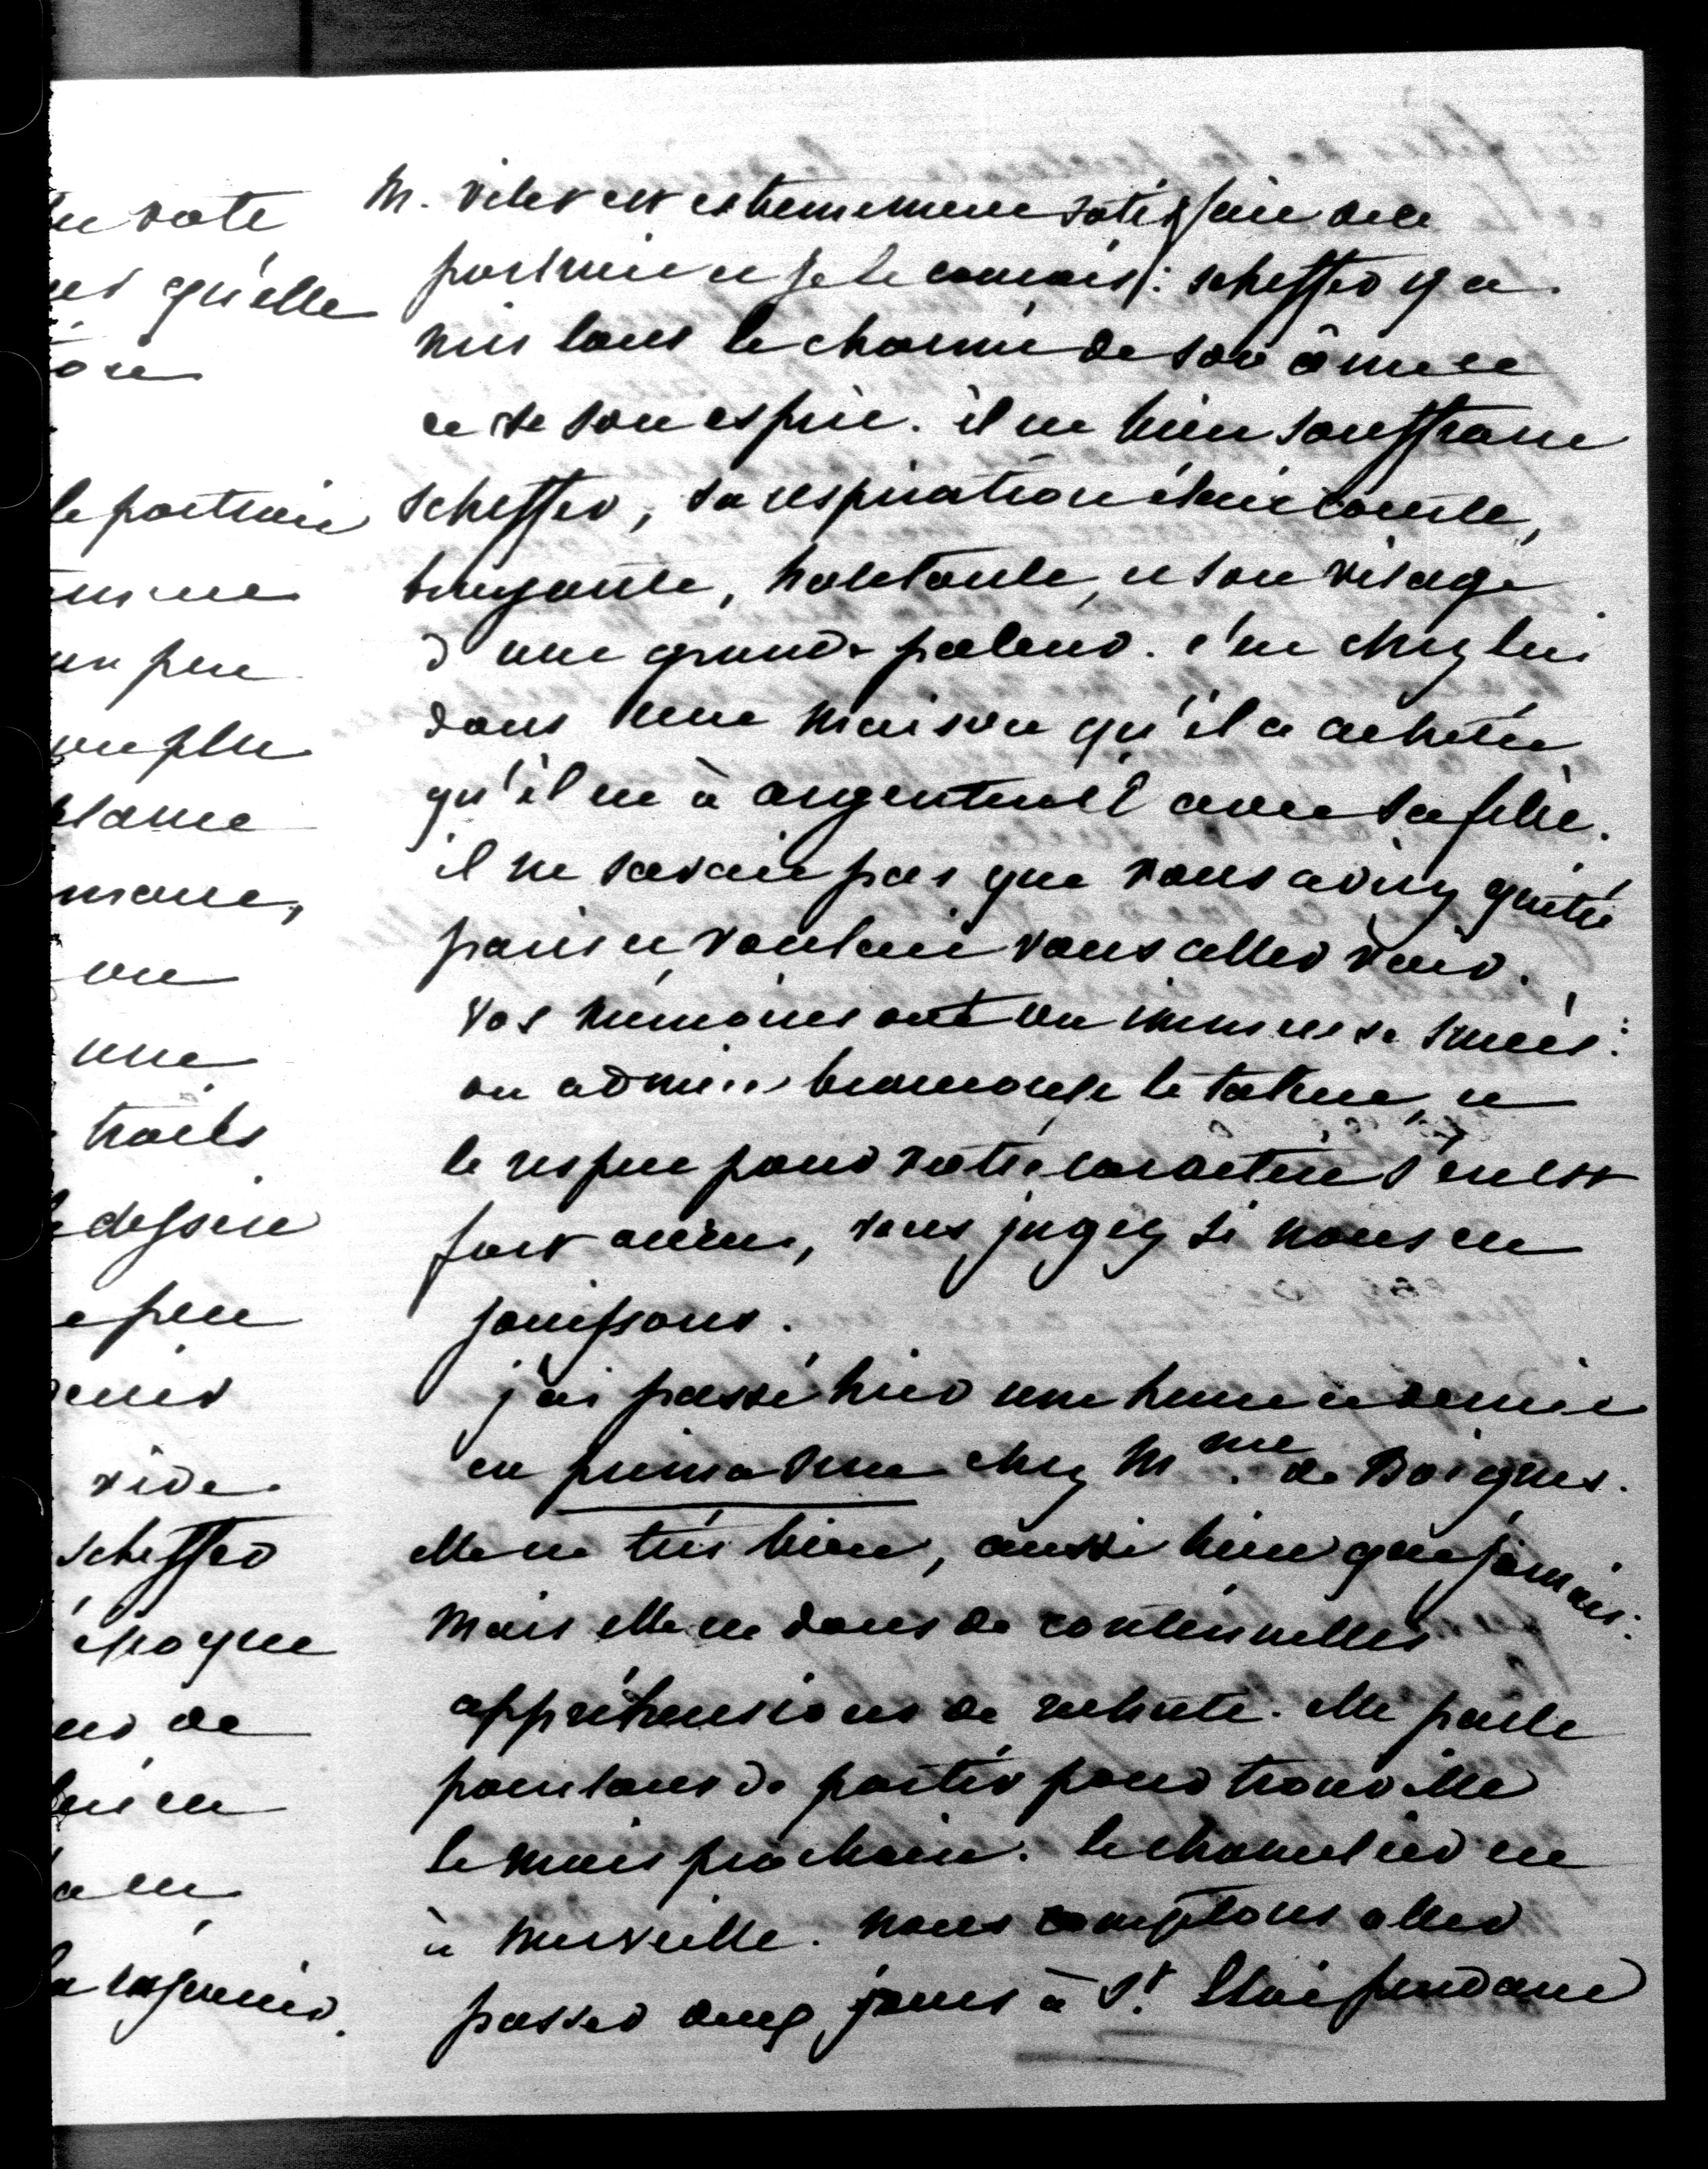 M. Vitet est extrememement satisfait de ce
portrait et je le connais: scheffer y a
mis tout le charme de son âme et
et de son esprit. il est bien souffrant
scheffer, sa respiration était courte,
bruyante, haletante, et son visage
d'une grande paleur. c'est chez lui
dans une maison qu'il a achetée
qu'il est à argenteuil avec sa fille.
il ne savait pas que vous aviez quitté
paris et voulait vous aller voir.
Vos mémoires ont un immense succès:
on admire le talent, et
le respect pour votre caractère s'en est
fort accru, vous jugez si nous en
jouissons.
j'ai passé hier une heure et demie
en chez Mme. de Boignes.
elle est très bien, aussi bien que jamais:
mais elle est dans de continuelles
appréhensions de rechute. elle parle
pourtant de partir pour trouville
le mois prochain. le chancelier est
à merveille. nous comptons aller
passer deux jours à St. Eloi pendant
un vote
qu'elle
le portrait
un peu
une
traits
dessin
peu
vide
scheffer
époque
de